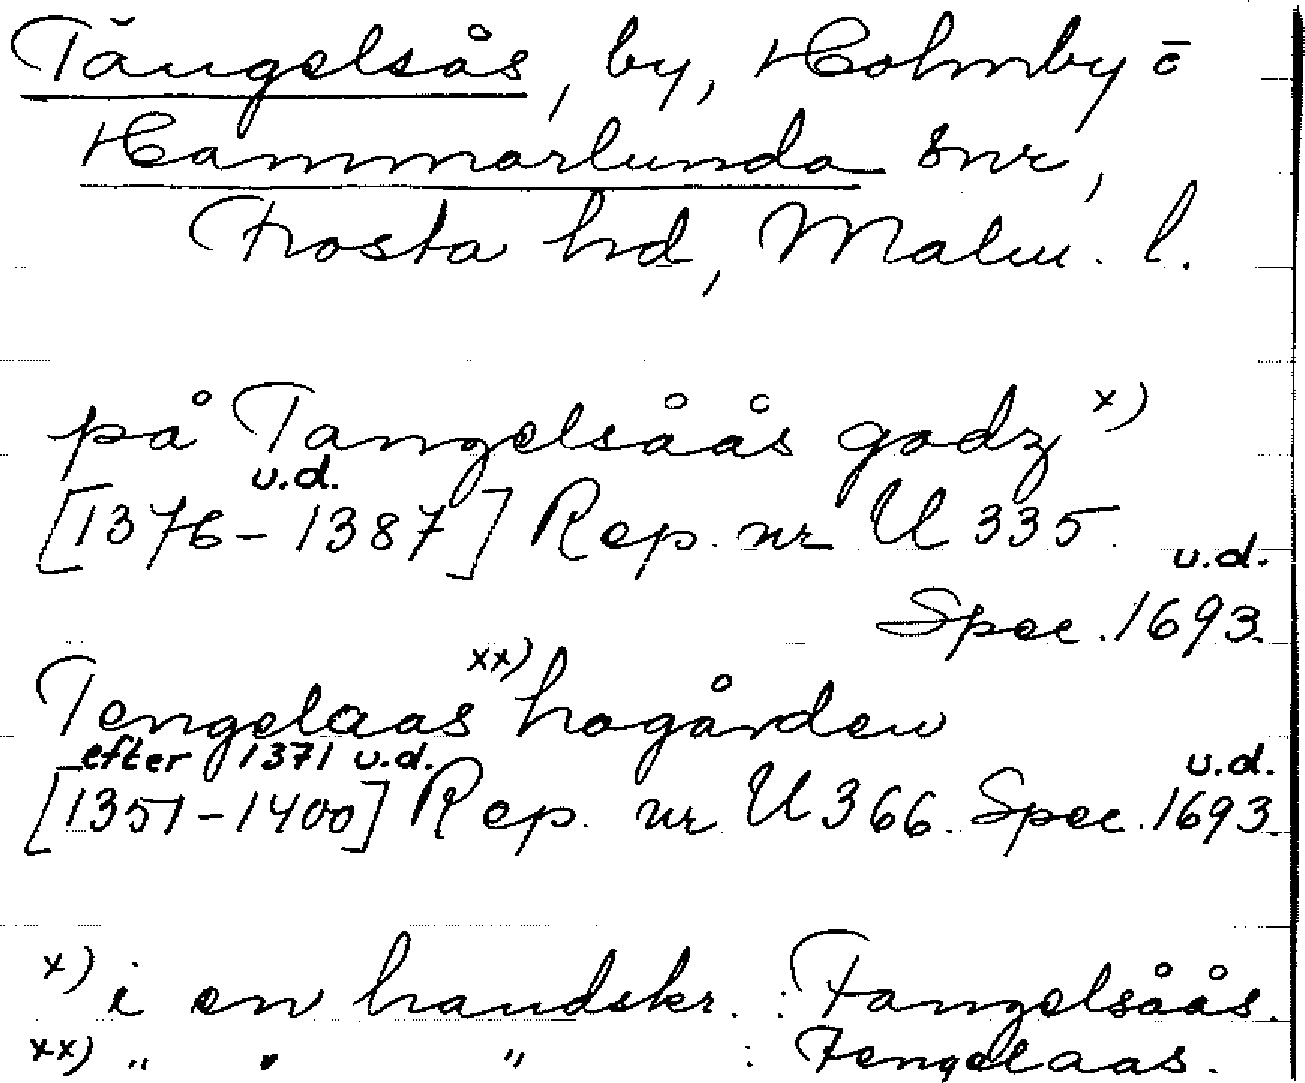 Tängelsås, by, Holmby o
Hammarlunda snr,
Frosta hd, Malm. l.
på Tangelsåås godz x)
u.d.
[1376-1387] Rep. nr U 335.
u.d.
Spec. 1693.
Tengelaas xx) hogården
efter 1371 u.d.
u.d.
[1351-1400] Rep. nr U 366. Spec. 1693
x) i en handskr. : Fangelsåås.
xx) " " " : Fengelaas.